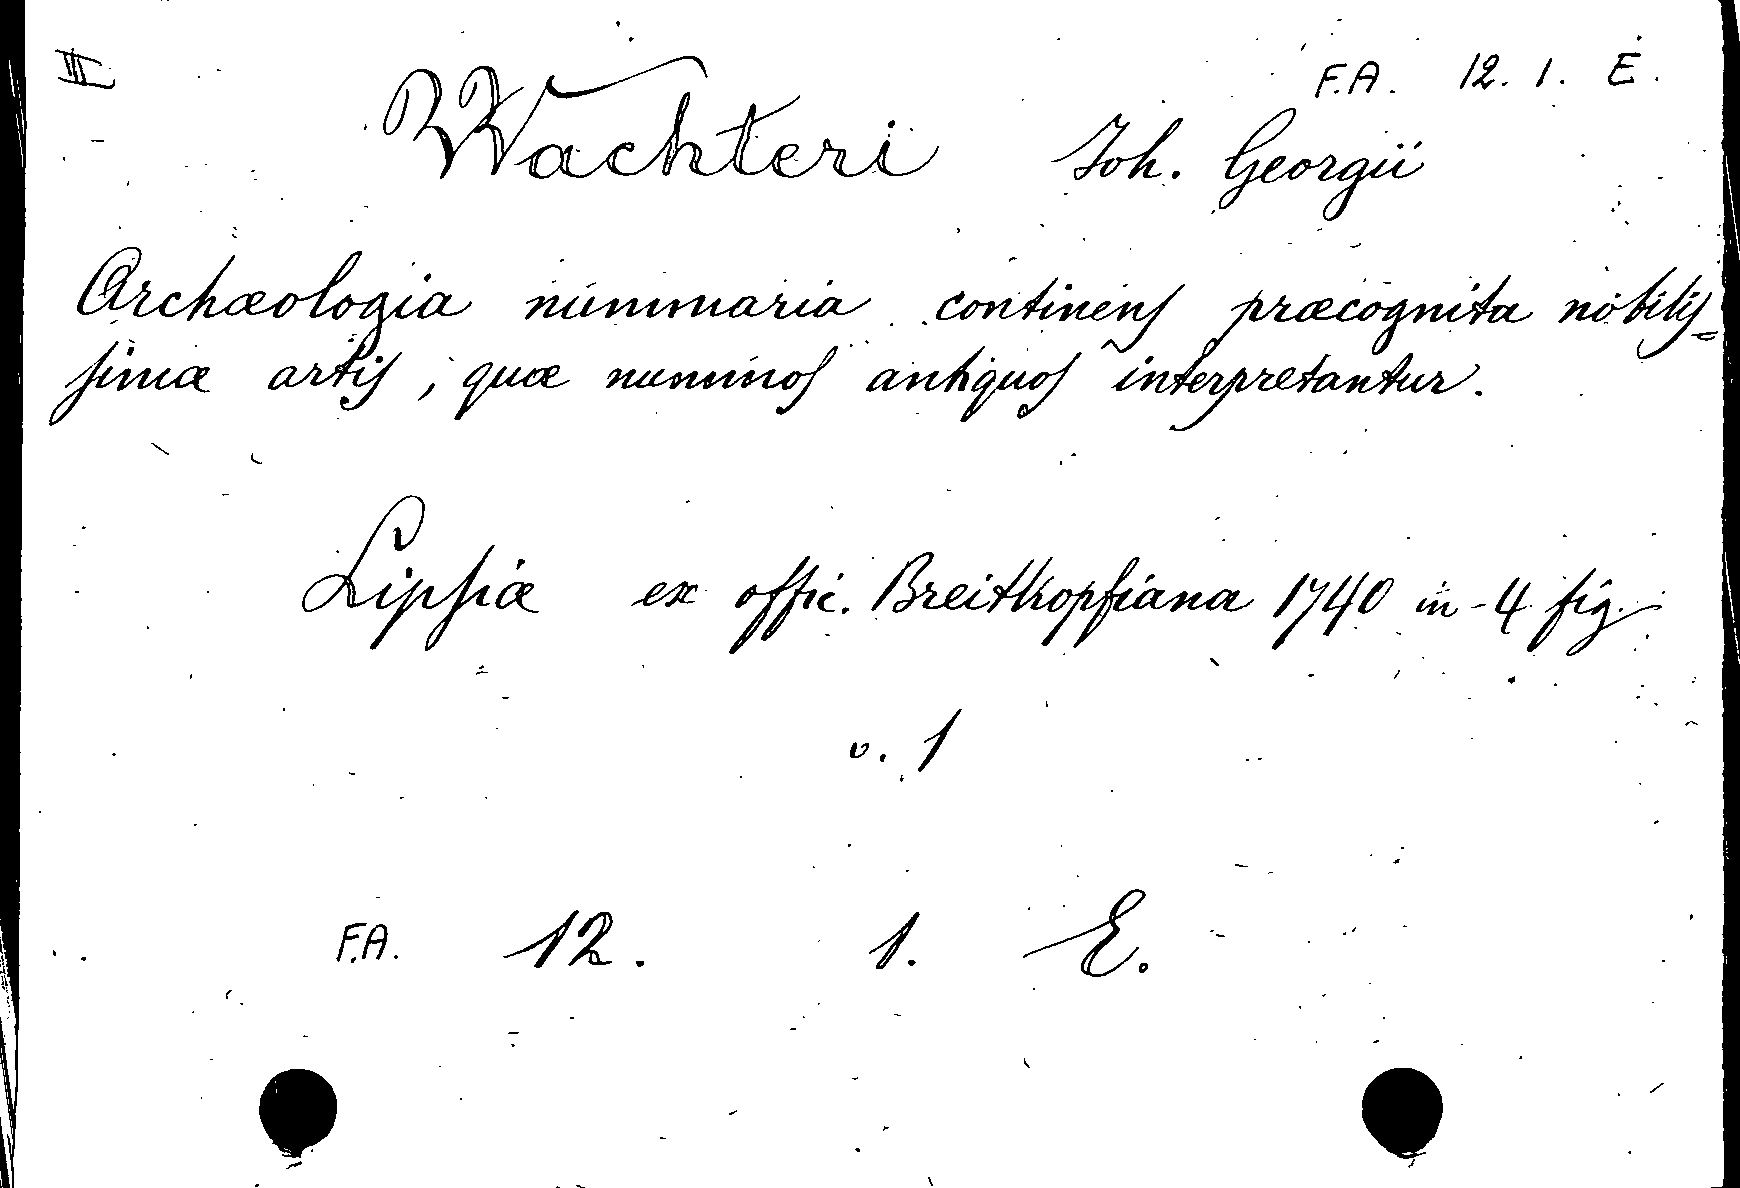 III
F.A. 12. 1. E.
Wachteri Joh. Georgii
Archæologia nummaria continens præcognita nobilis=
simæ artis, quæ nummos antiquos interpretantur.
Lipsiæ ex offic. Breitkopfiana 1740 in-4 fig.
v. 1
F.A. 12. 1. E.